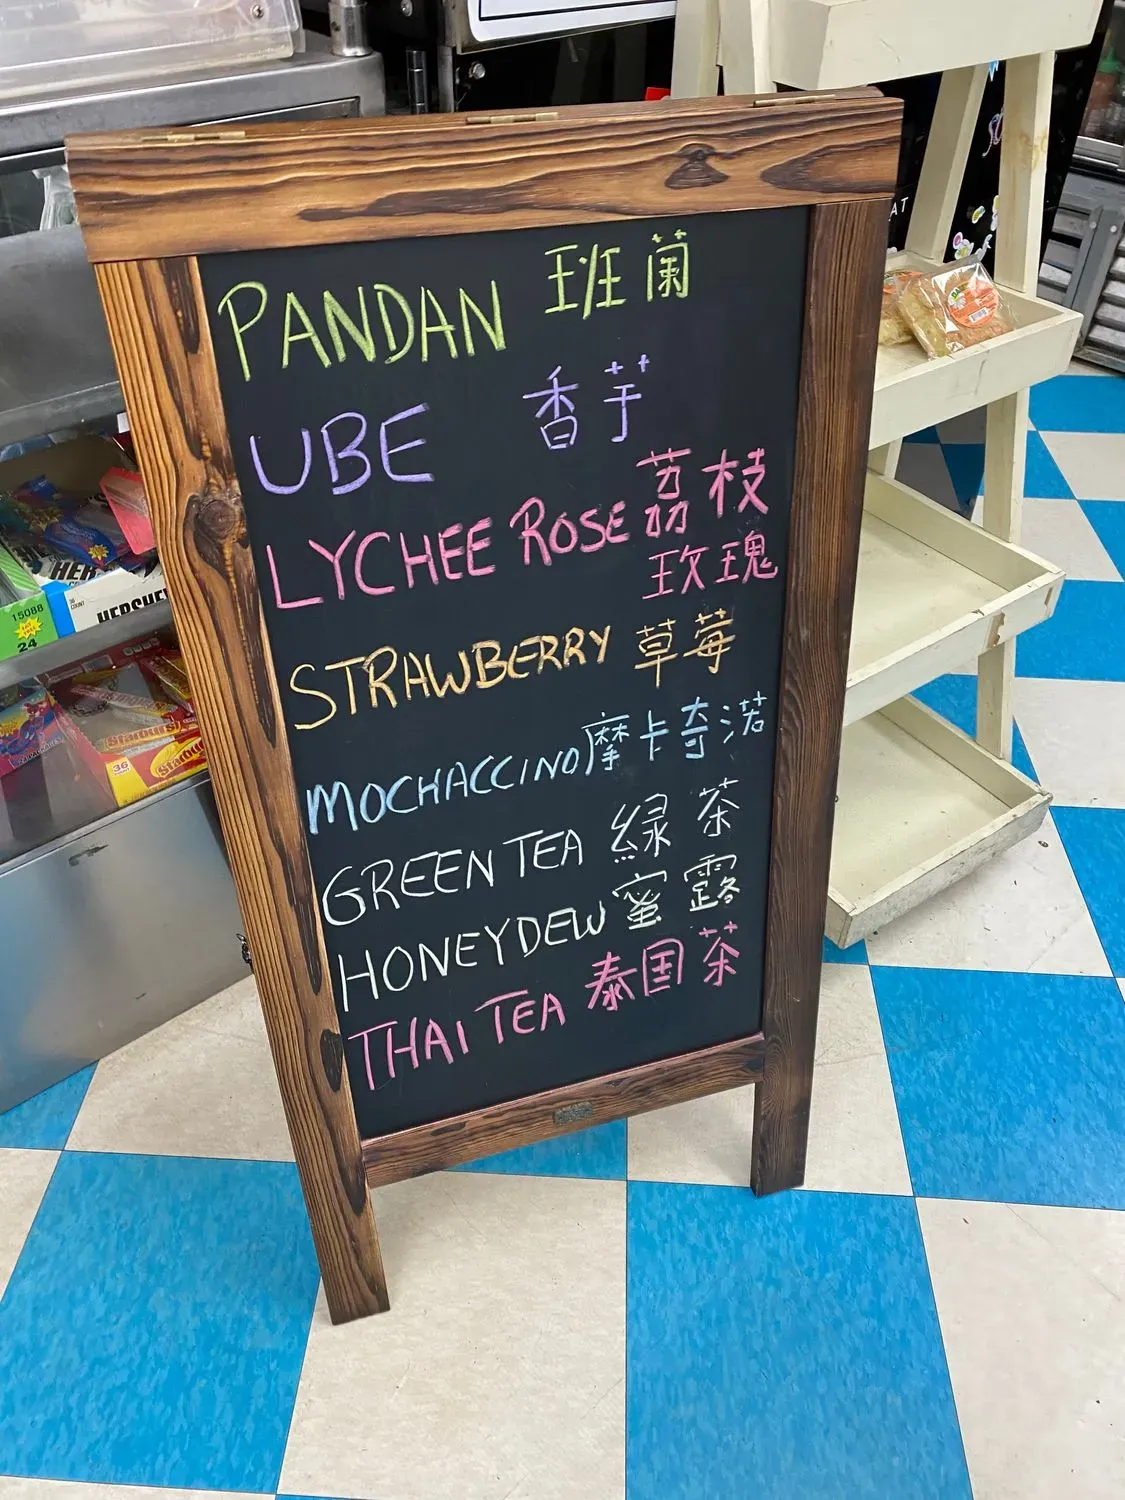 PANDAN 班蘭
UBE 香芋
LYCHEE ROSE 荔枝
玫瑰
STRAWBERRY 草莓
MOCHACCINO 摩卡奇諾
GREEN TEA 緑茶
HONEYDEW 蜜露
THAI TEA 泰国茶
HERSHEY
15088
24
36
Starburst
AT